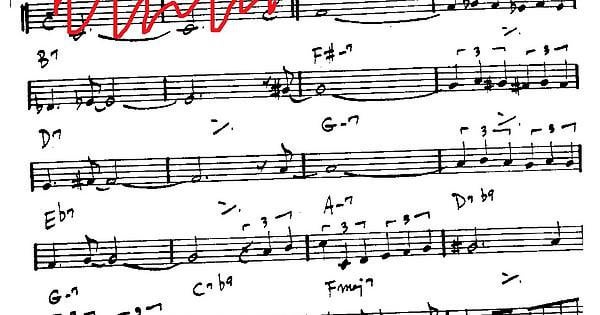 B7 F#-7
3 3
D7 G-7
3 3
Eb7 A-7 D7b9
3 3
G-7 C7b9 Fmaj7